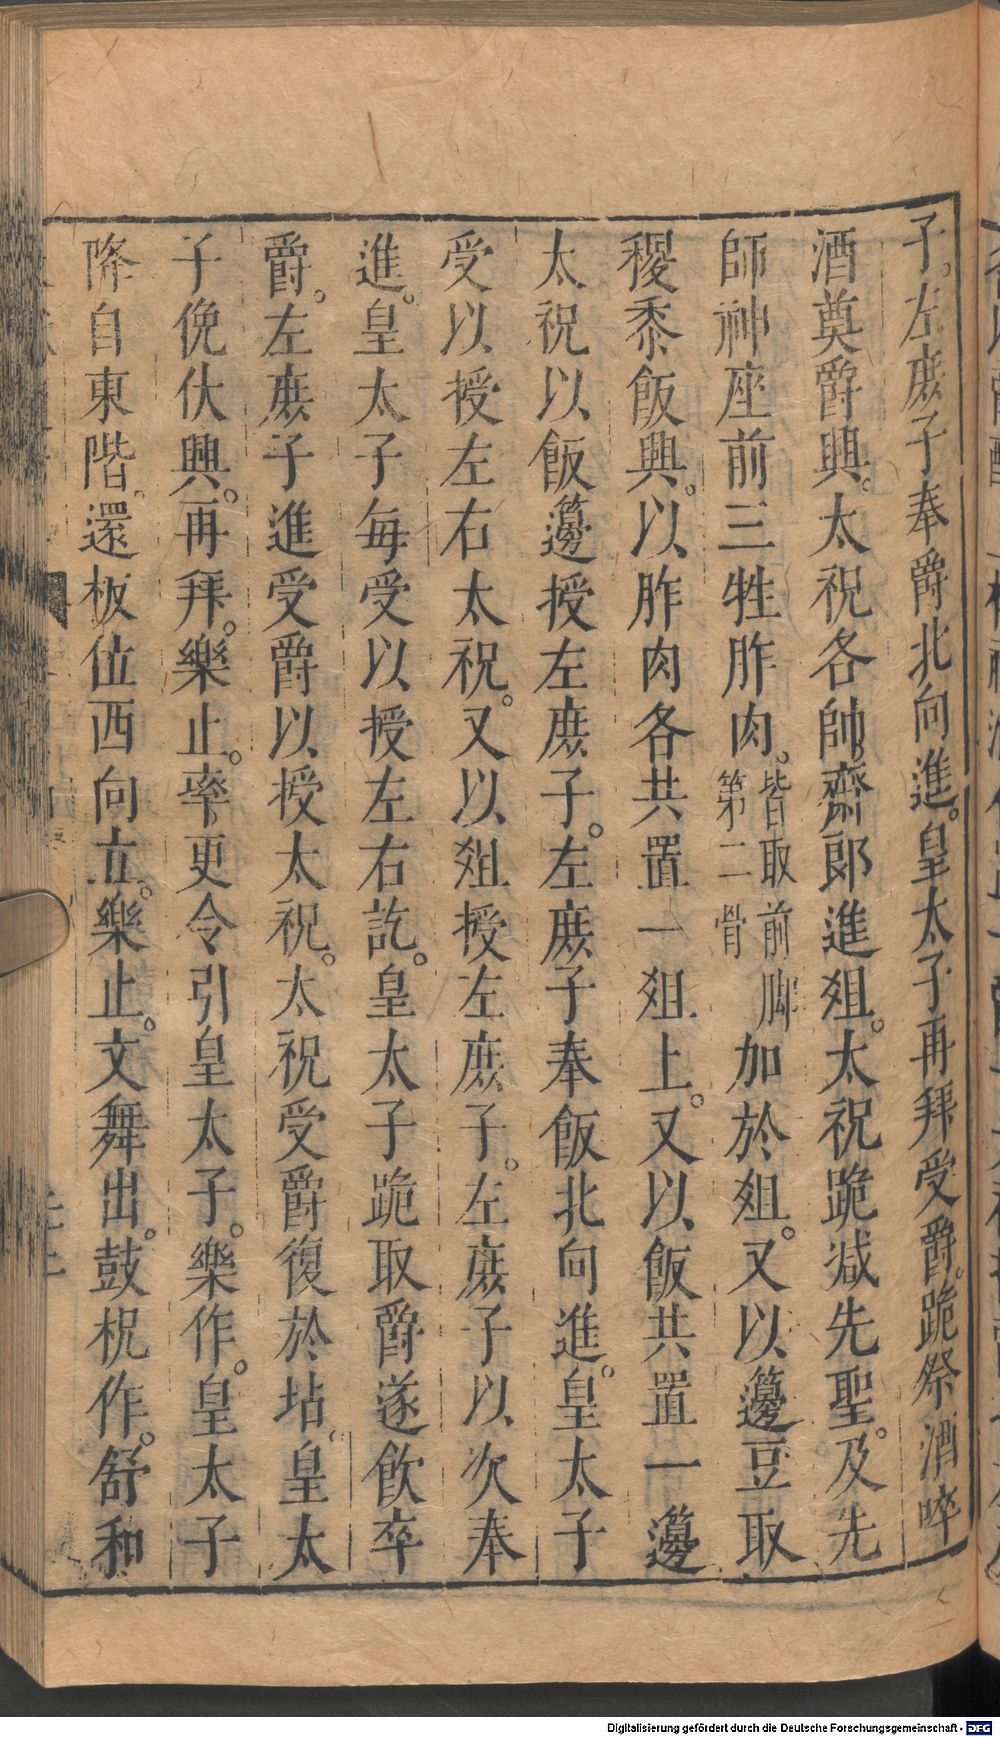 子。左庶子奉爵北向進。皇太子再拜受爵。跪祭酒啐
酒奠爵興。太祝各帥齋郎進俎。太祝跪減先聖。及先
師神座前三牲胙肉。皆取前脚第二骨加於俎。又以籩豆取
稷黍飯興。以胙肉各共置一俎上。又以飯共置一籩
太祝以飯籩授左庶子。左庶子奉飯北向進。皇太子
受以授左右太祝。又以俎授左庶子。左庶子以次奉
進。皇太子每受以授左右訖。皇太子跪取爵遂飲卒
爵。左庶子進受爵以授太祝。太祝受爵復於坫。皇太
子俛伏興。再拜。樂止。率更令引皇太子。樂作。皇太子
降自東階。還板位西向立。樂止。文舞出。鼓柷作。舒和
Digitalisierung gefördert durch die Deutsche Forschungsgemeinschaft - DFG